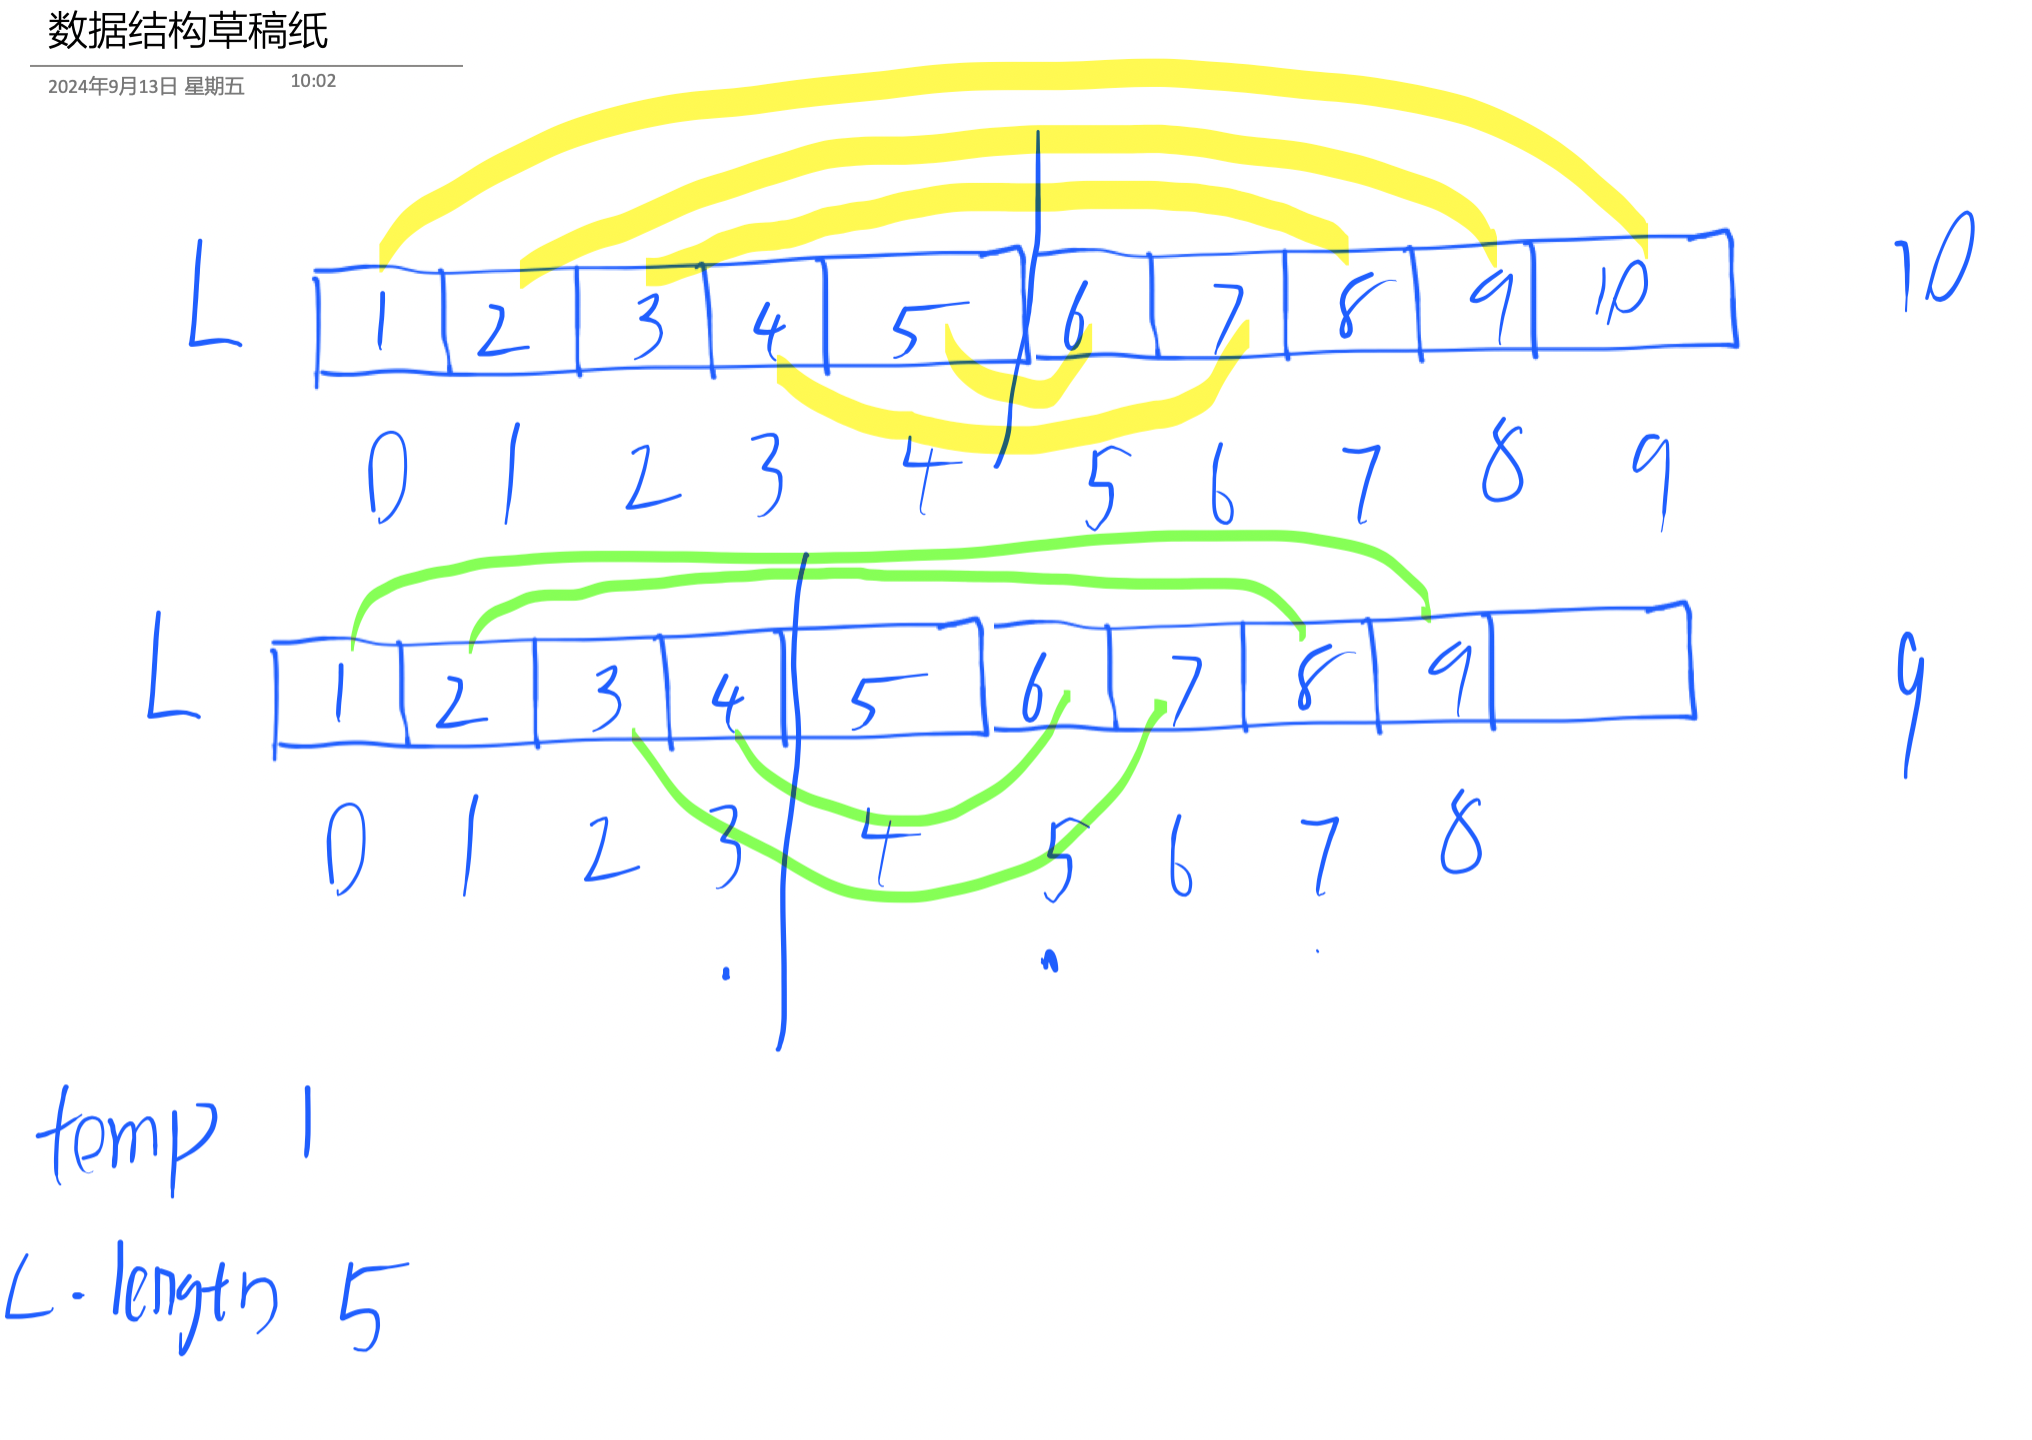 数据结构草稿纸
2024年9月13日 星期五 10:02
L 1 2 3 4 5 6 7 8 9 10 10
0 1 2 3 4 5 6 7 8 9
L 1 2 3 4 5 6 7 8 9 9
0 1 2 3 4 5 6 7 8
temp 1
L.length 5